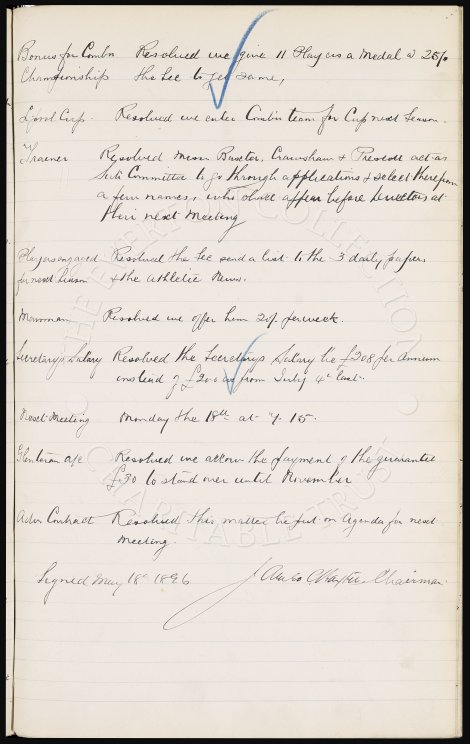 Bonus for Combn Resolved we give 11 Players a Medal & 25/-
Championship the Sec to get same,
L'pool Cup. Resolved we enter Combn team for Cup next Season.
Trainer Resolved Messrs Baxter, Crawshaw & Prescott act as
Sub Committee to go through applications & select therefrom
a few names, who shall appear before Directors at
their next Meeting
Players engaged Resolved the Sec send a list to the 3 daily papers
for next Season & the Athletic News.
Resolved we offer him 20/- per week.
Secretarys Salary Resolved the Secretarys Salary be £208 per Annum
instead of £200 as from July 4th last.
Next Meeting Monday the 18th at 7.15.
Glentoran a/c Resolved we allow the payment of the guarantee
£30 to stand over until November
Advr Contract Resolved this matter be put on Agenda for next
Meeting.
Signed May 18th 1896 James C Baxter Chairman.
THE EVERTON COLLECTION
CHARITABLE TRUST